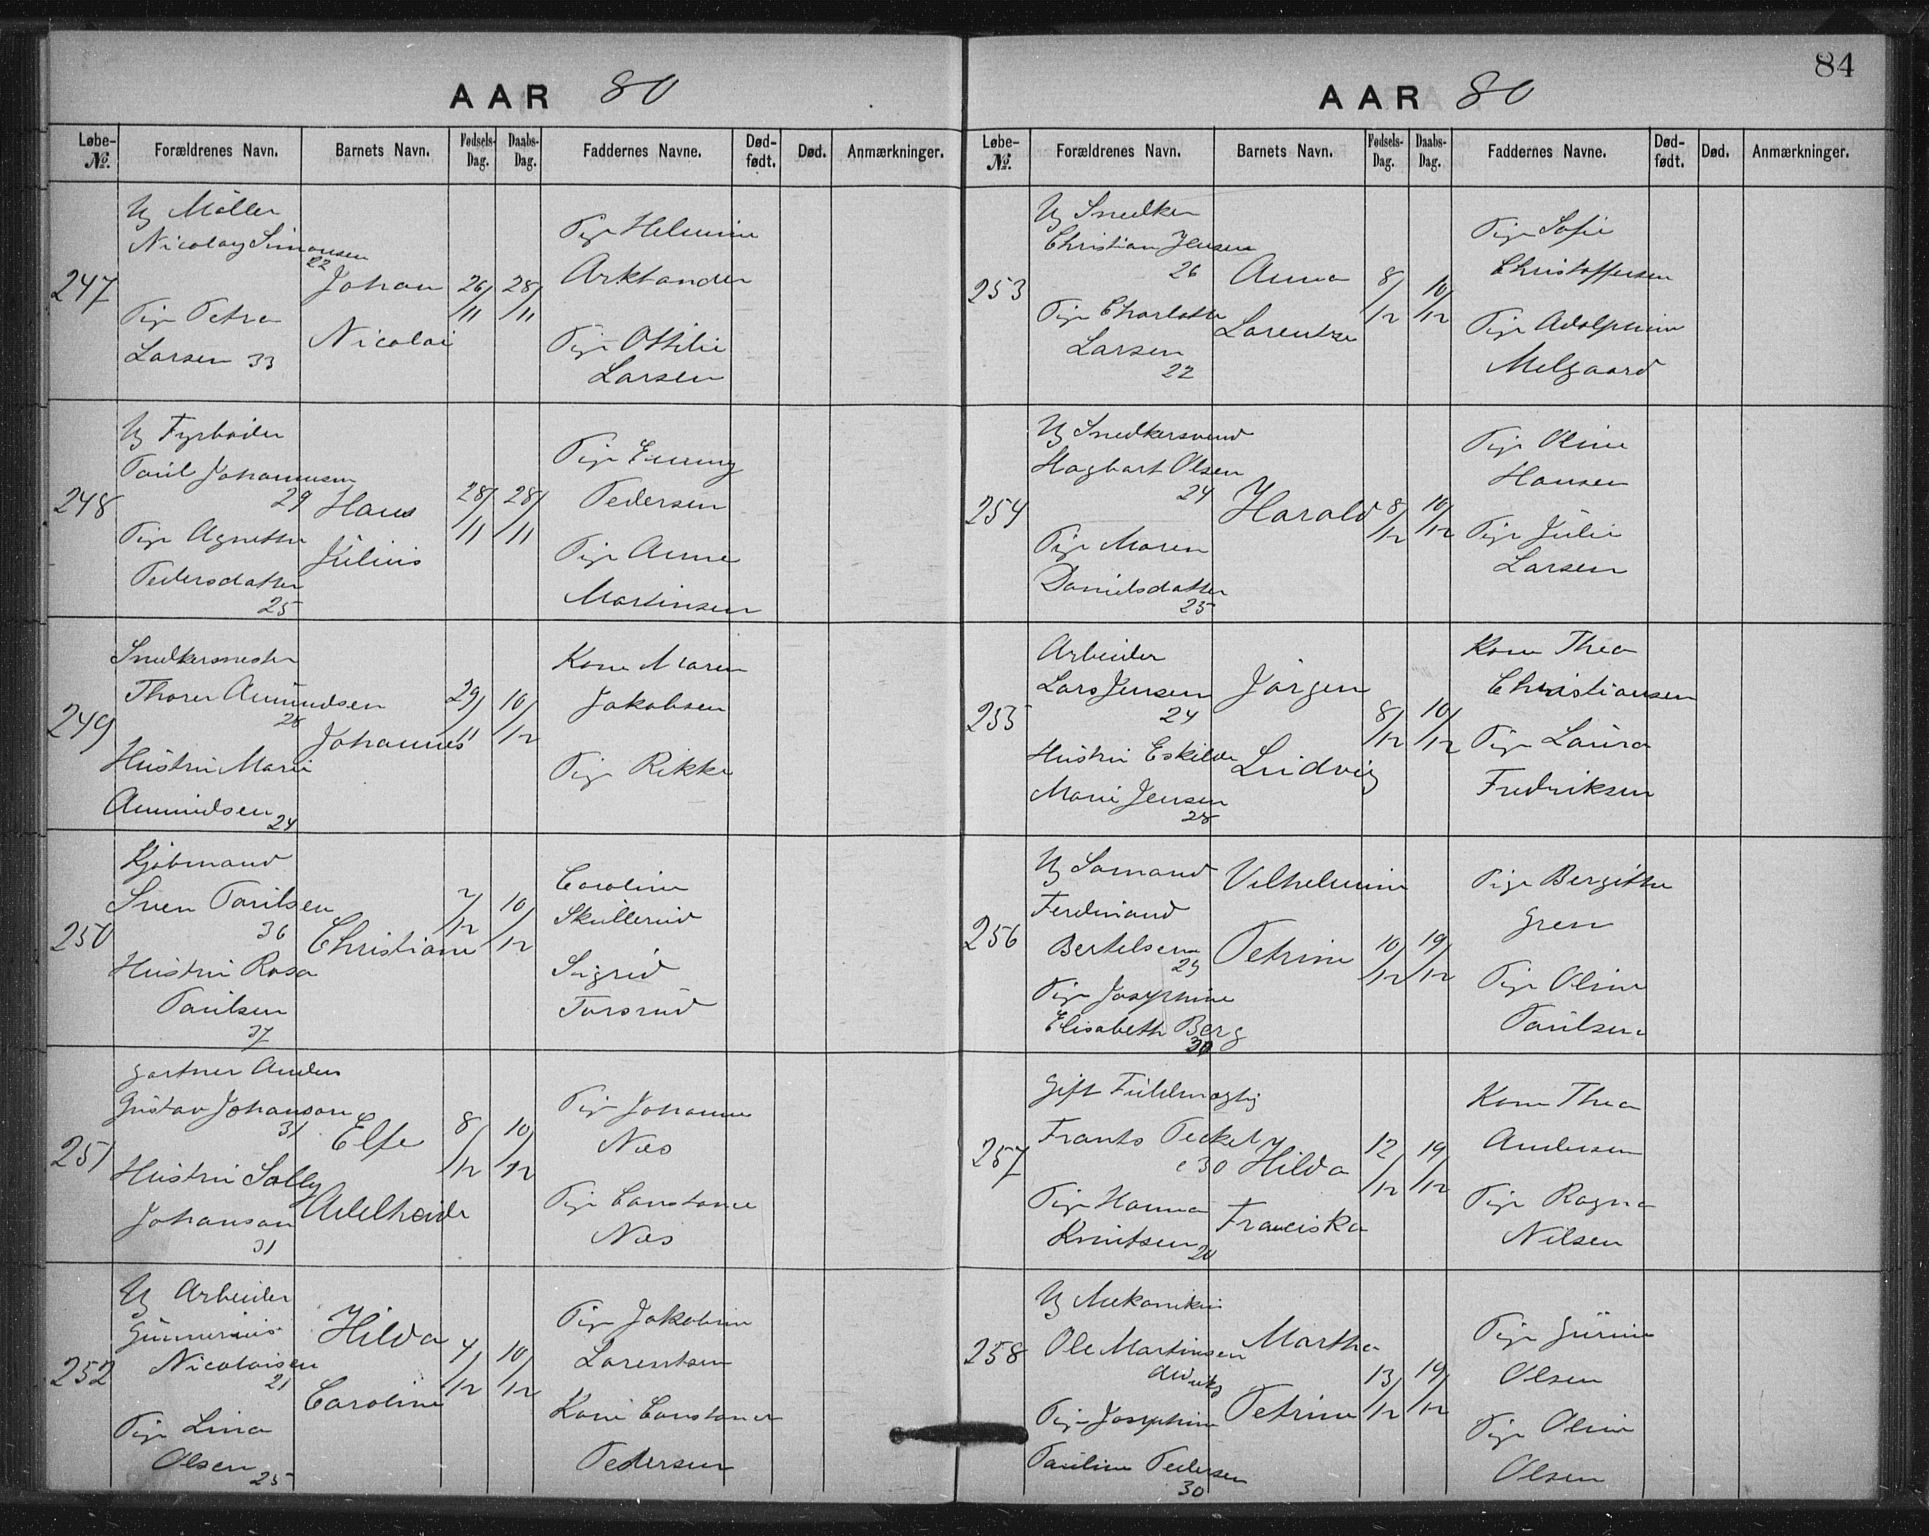 AAR 80
Løbe-№. Forældrenes Navn. Barnets Navn. Fødsels-Dag. Daabs-Dag. Faddernes Navne. Død-født. Død. Anmærkninger.
247
Ug Møller
Nicolay Simonsen
22
Pige Petra
Larsen 33
Johan
Nicolai
26/11
28/11
Pige Helmine
Arktander
Pige Ottilie
Larsen
248
Ug Fyrbøder
Paul Johannesen
29
Pige Agnethe
Pedersdatter
25
Hans
Julius
28/11
28/11
Pige Emmy
Pedersen
Pige Anne
Martinsen
249
Snedkermester
Thorer Amundsen
28
Hustru Marie
Amundsen 24
Johannes
29/11
10/12
Kone Maren
Jakobsen
Pige Rikke
250
Kjøbmand
Sven Paulsen
36
Hustru Rosa
Paulsen
37
Christiane
7/12
10/12
Caroline
Skullerud
Sigrid
Torsrud
251
Gartner Anders
Gustav Johanson
31
Hustru Solly
Johanson
31
Elfe
Adelheide
8/12
10/12
Pige Johanne
Næs
Pige Constance
Næs
252
Ug Arbeider
Gunnerius
Nicolaisen
21
Pige Lina
Olsen 25
Hilda
Caroline
4/12
10/12
Pige Jakobine
Lorentsen
Kone Constance
Pedersen
84
AAR 80
Løbe-№. Forældrenes Navn. Barnets Navn. Fødsels-Dag. Daabs-Dag. Faddernes Navne. Død-født. Død. Anmærkninger.
253
Ug Snedker
Christian Jensen
26
Pige Charlotte
Larsen
22
Anna
Lorentze
8/12
10/12
Pige Sofie
Christoffersen
Pige Adolphine
Melgaard
254
Ug Snedkersvend
Hagbart Olsen
24
Pige Maren
Danielsdatter
25
Harald
8/12
10/12
Pige Oline
Hansen
Pige Julie
Larsen
255
Arbeider
Lars Jensen
24
Hustru Eskilde
Marie Jensen
28
Jørgen
Ludvig
8/12
10/12
Kone Thea
Christiansen
Pige Laura
Fredriksen
256
Ug Sømand
Ferdinand
Bertelsen
29
Pige Josephine
Elisabeth Berg
30
Vilhelmine
Petrine
10/12
19/12
Pige Bergitte
Gren
Pige Oline
Paulsen
257
Gift Fuldmægtig
Frants Peckel
c 30
Pige Hanna
Knutsen 20
Hilda
Franciska
12/12
19/12
Kone Thea
Andersen
Pige Ragna
Nilsen
258
Ug Mekaniker
Ole Martinsen
Pige Josephine
Pauline Pedersen
30
Martha
Petrine
13/12
19/12
Pige Gurine
Olsen
Pige Oline
Olsen